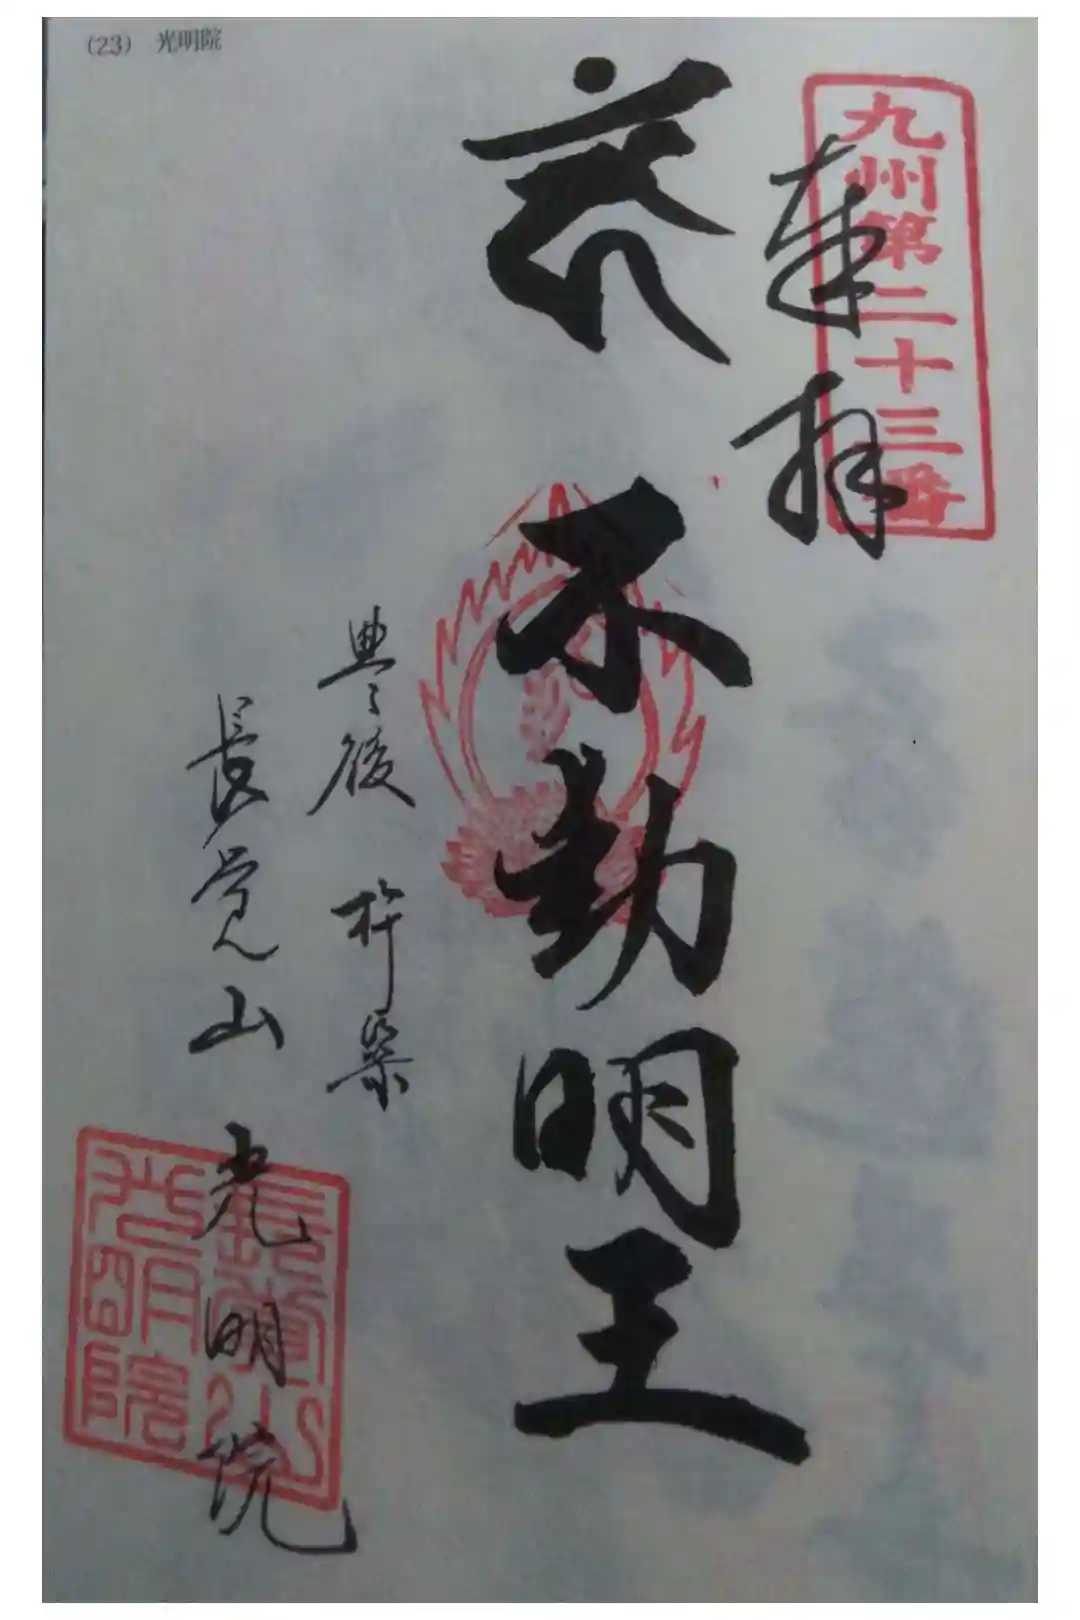 (23) 光明院
九州第二十三番
奉拝
不動明王
豊後 杵築
長覚山 光明院
長覚山
光明院